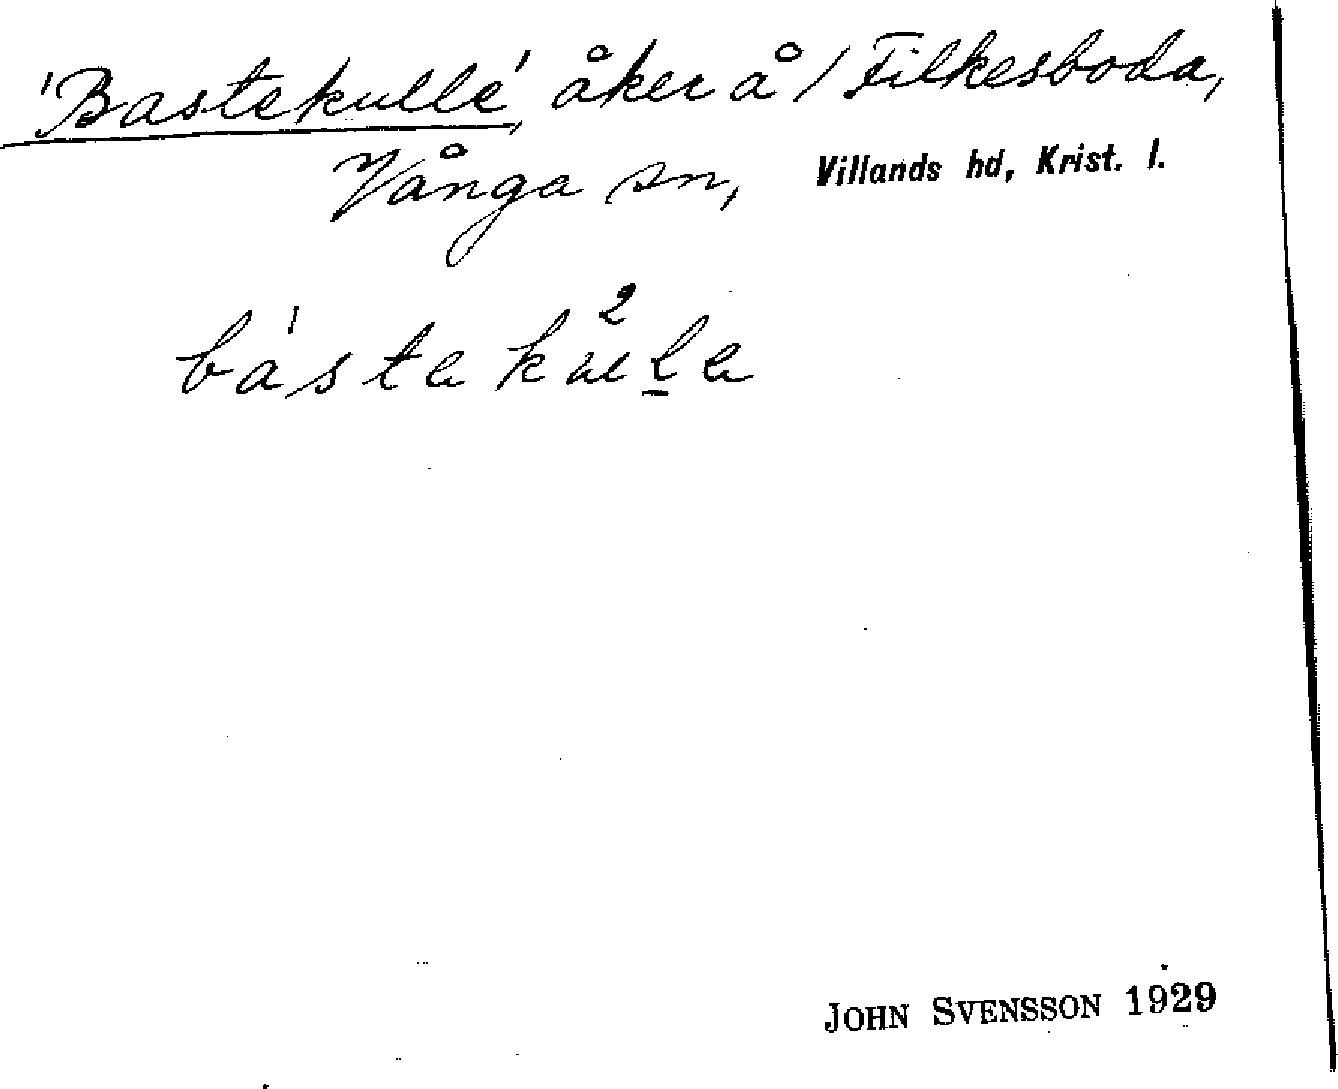 'Bastekulle', åker å / Filkesboda,
Vånga sn, Villands hd, Krist. l.
bástakùla
JOHN SVENSSON 1929